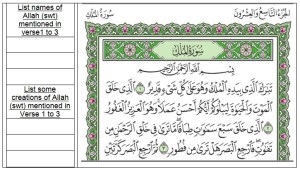 List names of
Allah (swt)
mentioned in
verse1 to 3
List some
creations of Allah
(swt) mentioned in
Verse 1 to 3
الجزء التاسع والعشرون
سورة الملك
سُورَةُ المُلْكِ
بِسْمِ اللَّهِ الرَّحْمَٰنِ الرَّحِيمِ
تَبَٰرَكَ الَّذِي بِيَدِهِ الْمُلْكُ وَهُوَ عَلَىٰ كُلِّ شَيْءٍ قَدِيرٌ ١ الَّذِي خَلَقَ
الْمَوْتَ وَالْحَيَوٰةَ لِيَبْلُوَكُمْ أَيُّكُمْ أَحْسَنُ عَمَلًا وَهُوَ الْعَزِيزُ الْغَفُورُ
٢ الَّذِي خَلَقَ سَبْعَ سَمَٰوَٰتٍ طِبَاقًا مَّا تَرَىٰ فِي خَلْقِ الرَّحْمَٰنِ مِن
تَفَٰوُتٍ فَارْجِعِ الْبَصَرَ هَلْ تَرَىٰ مِن فُطُورٍ ٣ ثُمَّ ارْجِعِ الْبَصَرَ كَرَّتَيْنِ